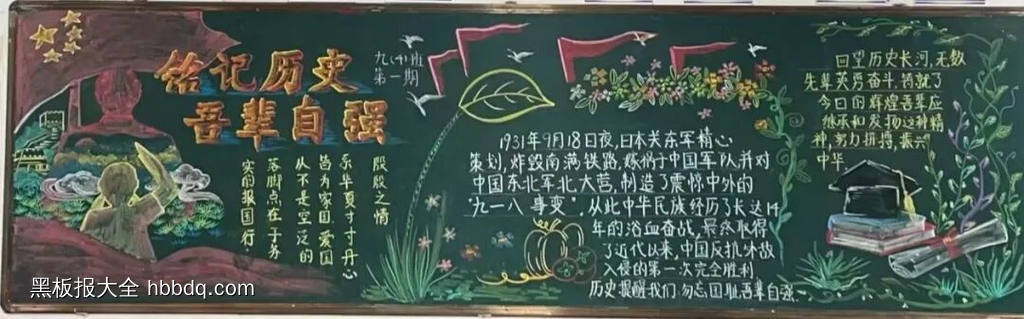 铭记历史
吾辈自强
九(4)班
第一期
殷殷之情
系华夏寸寸丹心
皆为家国爱国
从不是空泛的
落脚点在于务
实的报国行
1931年9月18日夜,日本关东军精心
策划,炸毁南满铁路,嫁祸于中国军队并对
中国东北军北大营,制造了震惊中外的
"九一八事变",从此中华民族经历了长达14
年的浴血奋战,最终取得
了近代以来,中国反抗外敌
入侵的第一次完全胜利
历史提醒我们,勿忘国耻吾辈自强
回望历史长河,无数
先辈英勇奋斗,铸就了
今日的辉煌吾辈应
继承和发扬这种精
神,努力拼搏,振兴
中华
黑板报大全 hbbdq.com